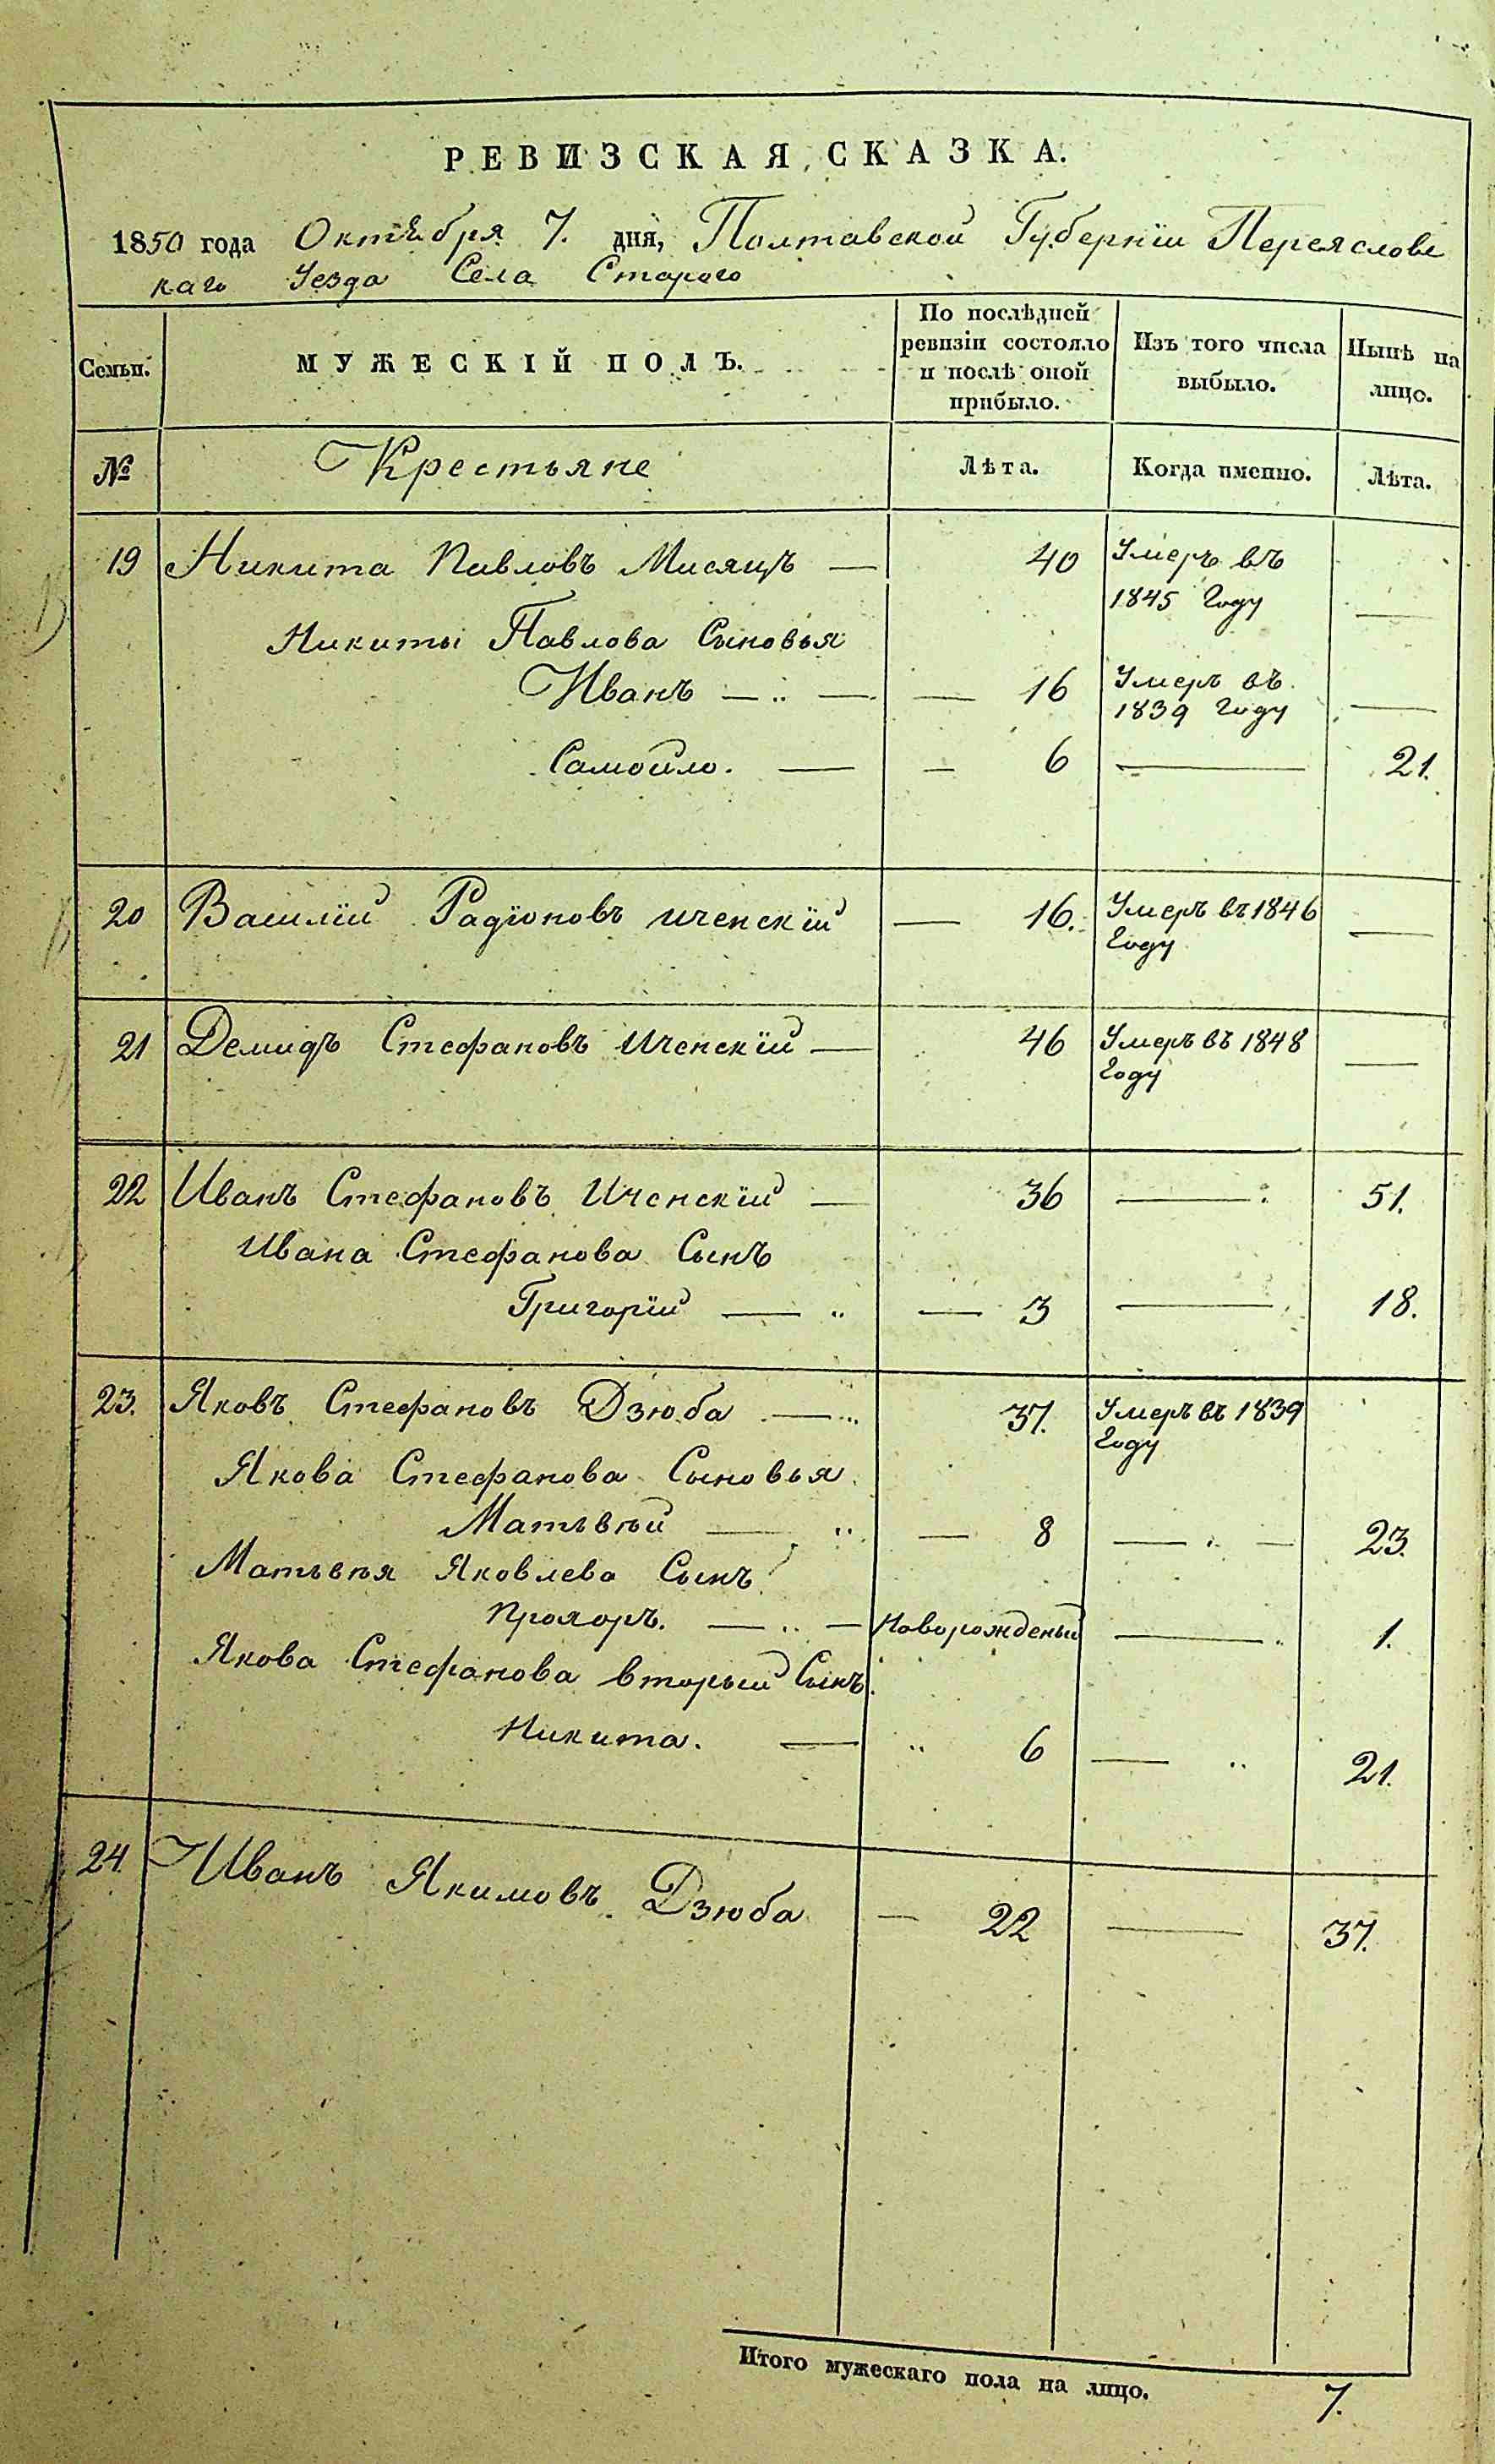 РЕВИЗСКАЯ СКАЗКА.
1850 года Октября 7. дня, Полтавской Губерніи Переяславс
каго Уезда Села Старого
Семьи.
МУЖЕСКІЙ ПОЛЪ.
По послѣдней
ревизіи состояло
и послѣ оной
прибыло.
Изъ того числа
выбыло.
Нынѣ на
лицо.
№ Крестьяне Лѣта. Когда именно. Лѣта.
19 Никита Павловъ Мисяцъ — 40 Умеръ въ
1845 году —
Никиты Павлова Сыновья
Иванъ — — — 16 Умеръ въ
1839 году —
Самойло. — — 6 — 21.
20 Василій Радіоновъ Иченскій — 16. Умеръ въ 1846
году —
21 Демидъ Стефановъ Иченскій — 46 Умеръ въ 1848
году —
22 Иванъ Стефановъ Иченскій — 36 — 51.
Ивана Стефанова Сынъ
Григорій — — 3 — 18.
23. Яковъ Стефановъ Дзюба — 37. Умеръ въ 1839
году
Якова Стефанова Сыновья
Матьвѣй — — 8 — — 23.
Матьвѣя Яковлева Сынъ
Прохоръ. — — Новорожденый — 1.
Якова Стефанова вторый Сынъ
Никита. — 6 — 21.
24. Иванъ Якимовъ Дзюба — 22 — 37.
Итого мужескаго пола на лицо. 7.